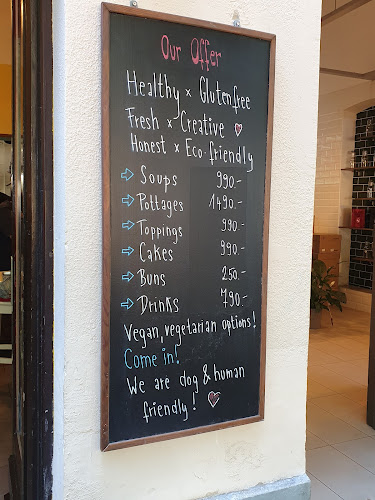 Our Offer
Healthy × Glutenfree
Fresh × Creative ♡
Honest × Eco-friendly
⇨ Soups 990.-
⇨ Pottages 1490.-
⇨ Toppings 990.-
⇨ Cakes 990.-
⇨ Buns 250.-
⇨ Drinks 790.-
Vegan, vegetarian options!
Come in!
We are dog & human
friendly! ♡